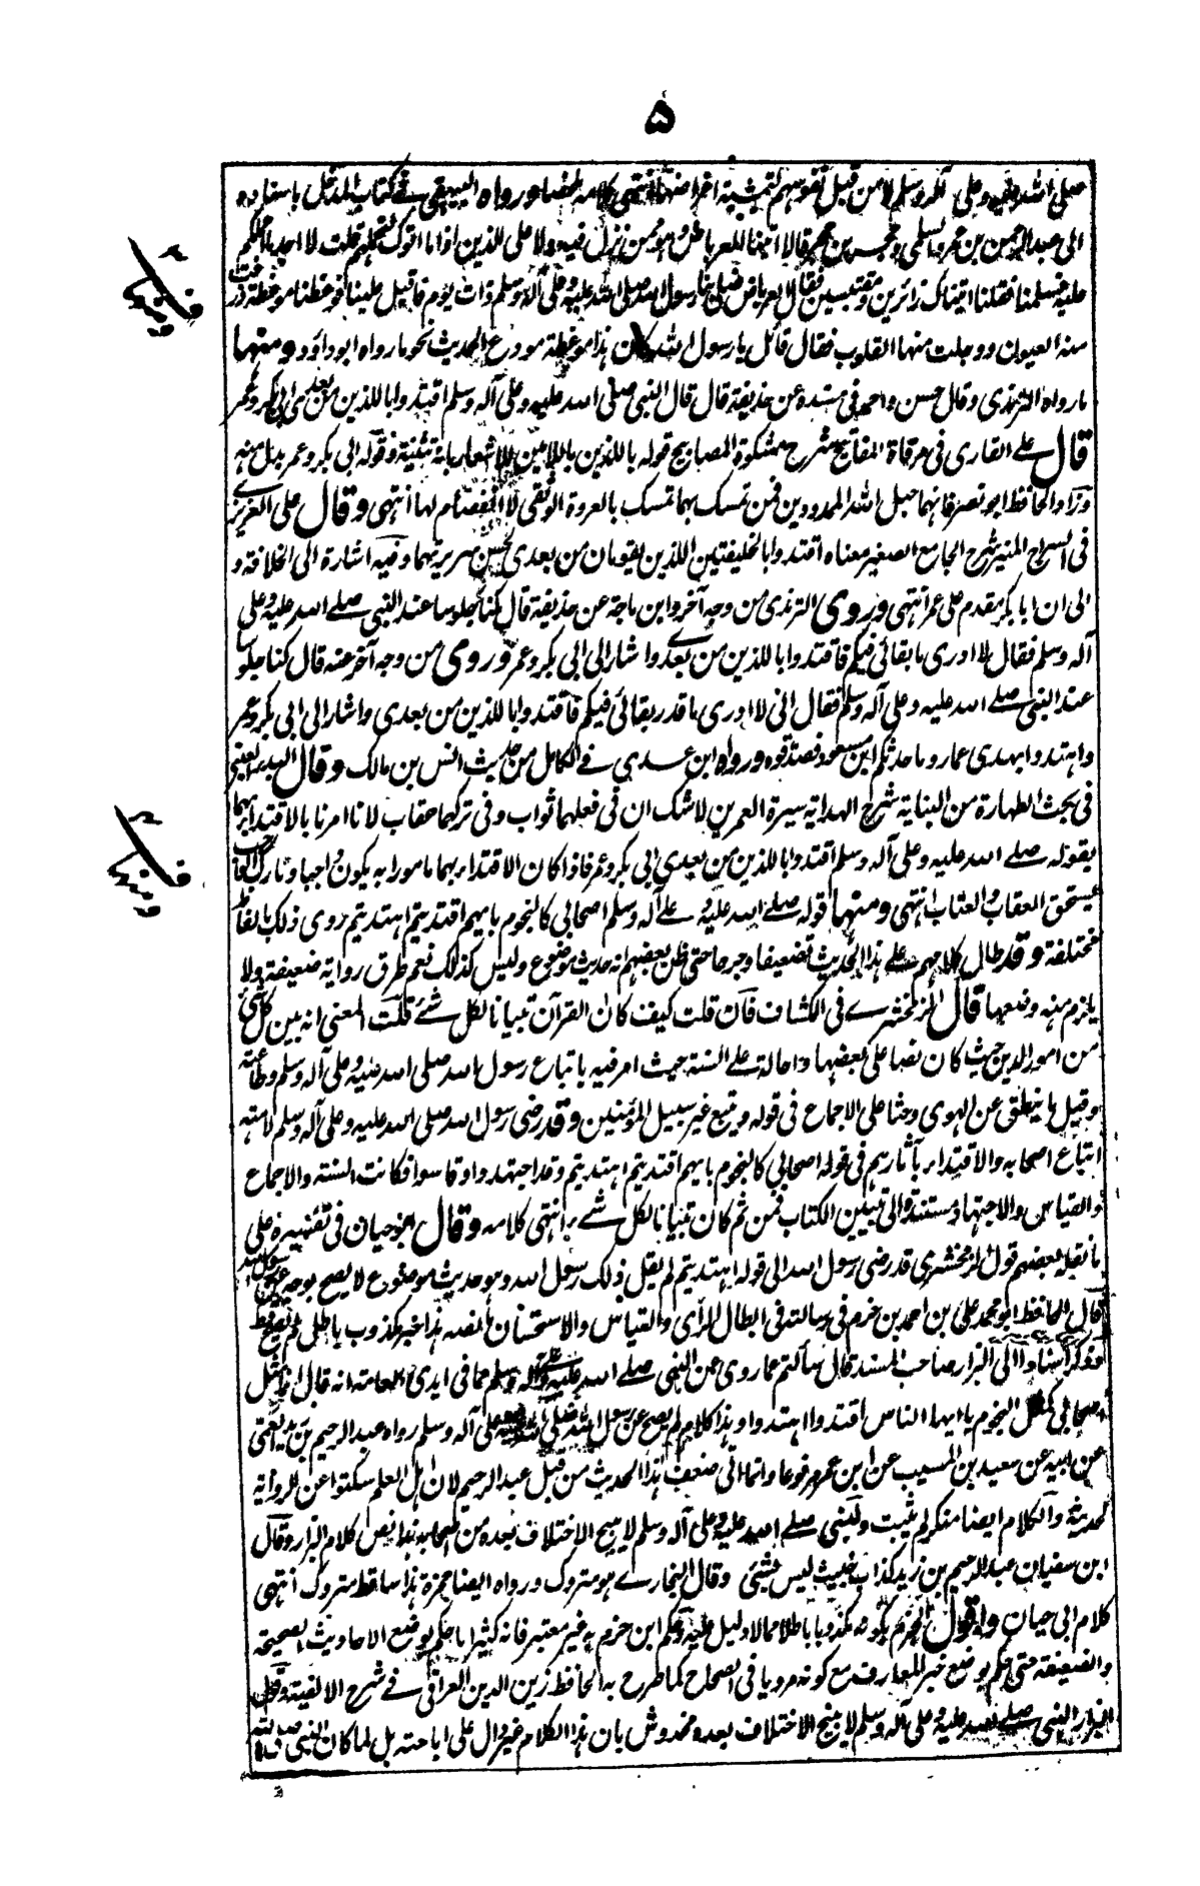 ۵
صلى الله عليه وعلى آله وسلم لا من قبل نفوسهم لتمشية اغراضها انتهى كلامه ملخصا ورواه البيهقي في كتاب المدخل باسناده
الى عبد الرحمن بن عمرو السلمي وحجر بن حجر قالا اتينا العرباض وهو ممن نزل فيه ولا على الذين اذا ما اتوك لتحملهم قلت لا اجد ما احملكم
عليه فسلمنا فقلنا اتيناك زائرين ومقتبسين فقال العرباض صلى بنا رسول الله صلى الله عليه وعلى آله وسلم ذات يوم فاقبل علينا فوعظنا موعظة ذرفت
منه العيون ووجلت منها القلوب فقال قائل يا رسول الله كان هذا موعظة مودع الحديث نحو ما رواه ابو داؤد ومنها
ما رواه الترمذي وقال حسن واحمد في مسنده عن حذيفة قال قال النبي صلى الله عليه وعلى آله وسلم اقتدوا باللذين من بعدي ابي بكر وعمر
قال علي القاري في مرقاة المفاتيح شرح مشكوة المصابيح قوله باللذين باللامين للاشعار بانه تثنية وقوله ابي بكر وعمر بدل منه
وزاد الحافظ ابو نصر فانهما حبل الله الممدود من فمن تمسك بهما تمسك بالعروة الوثقى لا انفصام لها انتهى وقال علي العزيزي
في السراج المنير شرح الجامع الصغير معناه اقتدوا بالخليفتين اللذين يقومان من بعدي لحسن سريرتهما وفيه اشارة الى الخلافة و
الى ان ابا بكر مقدم على عمر انتهى وروى الترمذي من وجه آخر وابن ماجة عن حذيفة قال كنا جلوسا عند النبي صلى الله عليه وعلى
آله وسلم فقال لا ادري ما بقائي فيكم فاقتدوا باللذين من بعدي واشار الى ابي بكر وعمر وروى من وجه آخر عنه قال كنا جلوسا
عند النبي صلى الله عليه وعلى آله وسلم فقال اني لا ادري ما قدر بقائي فيكم فاقتدوا باللذين من بعدي واشار الى ابي بكر وعمر
واهتدوا بهدي عمار وما حدثكم ابن مسعود فصدقوه ورواه ابن عدي في الكامل من حديث انس بن مالك وقال البدر العيني
في بحث الطهارة من البناية شرح الهداية سيرة العمرين لا شك ان في فعلهما ثواب وفي تركهما عقاب لانا امرنا بالاقتداء بهما
بقوله صلى الله عليه وعلى آله وسلم اقتدوا باللذين من بعدي ابي بكر وعمر فاذا كان الاقتداء بهما مامورا به يكون واجبا وتارك الواجب
يستحق العقاب والعتاب انتهى ومنها قوله صلى الله عليه وعلى آله وسلم اصحابي كالنجوم بايهم اقتديتم اهتديتم روى ذلك بالفاظ
مختلفة وقد طال كلامهم على هذا الحديث تضعيفا وجرحا حتى ظن بعضهم انه حديث موضوع وليس كذلك نعم طرق رواية ضعيفة ولا
يلزم منه وضعها قال الزمخشري في الكشاف فان قلت كيف كان القرآن تبيانا لكل شئ قلت المعنى انه بين كل شئ
من امور الدين حيث كان نصا على بعضها واحالة على السنة حيث امر فيه باتباع رسول الله صلى الله عليه وعلى آله وسلم وطاعته
وقيل ما ينطق عن الهوى وحثا على الاجماع في قوله ويتبع غير سبيل المؤمنين وقد رضي رسول الله صلى الله عليه وعلى آله وسلم لامته
اتباع اصحابه والاقتداء بآثارهم في قوله اصحابي كالنجوم بايهم اقتديتم اهتديتم وقد اجتهدوا وقاسوا فكانت السنة والاجماع
والقياس والاجتهاد مستندة الى تبيين الكتاب فمن ثم كان تبيانا لكل شئ انتهى كلامه وقال ابو حيان في تفسيره على
ما نقله بعضهم قول الزمخشري قد رضي رسول الله الى قوله اهتديتم لم يقل ذلك رسول الله وهو حديث موضوع لا يصح بوجه عن رسول الله
قال الحافظ ابو محمد علي بن احمد بن حزم في رسالته في ابطال الرأي والقياس والاستحسان ما نصه هذا خبر مكذوب باطل لم يصح قط
وذكر اسنادا الى البزار صاحب المسند قال سألتم عما روي عن النبي صلى الله عليه وعلى آله وسلم مما في ايدي العامة انه قال انما مثل
اصحابي كمثل النجوم بايها الناس اقتدوا اهتدوا وهذا كلام لم يصح عن رسول الله صلى الله عليه وعلى آله وسلم رواه عبد الرحيم بن زيد العمي
عن ابيه عن سعيد بن المسيب عن ابن عمر مرفوعا وانما اتى ضعف هذا الحديث من قبل عبد الرحيم لان اهل العلم سكتوا عن الرواية
لحديثه والكلام ايضا منكر لم يثبت والنبي صلى الله عليه وعلى آله وسلم لا يبيح الاختلاف بعده من اصحابه هذا نص كلام البزار وقال
ابن سفيان عبد الرحيم بن زيد كذاب خبيث ليس بشئ وقال البخاري هو متروك ورواه ايضا حمزة هذا ساقط متروك انتهى
كلام ابي حيان واقول الجزم بكونه مكذوبا باطلا مما لا دليل عليه وحكم ابن حزم به غير معتبر فانه كثيرا ما حكم بوضع الاحاديث الصحيحة
والضعيفة حتى حكم بوضع خبر المعارف مع كونه مرويا في الصحاح كما صرح به الحافظ زين الدين العراقي في شرح الالفية وقول
البزار النبي صلى الله عليه وعلى آله وسلم لا يبيح الاختلاف بعده مخدوش بان هذا الكلام غير دال على اباحته بل لما كان النبي صلى الله